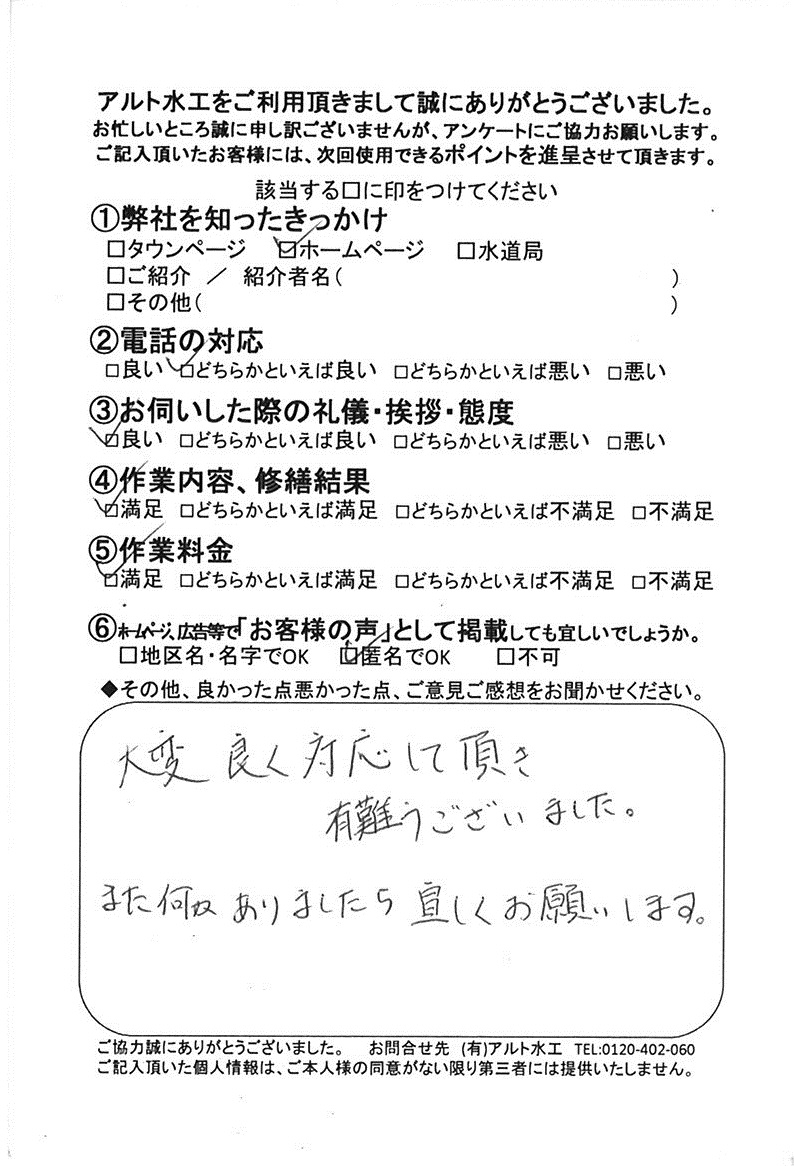 アルト水工をご利用頂きまして誠にありがとうございました。
お忙しいところ誠に申し訳ございませんが、アンケートにご協力お願いします。
ご記入頂いたお客様には、次回使用できるポイントを進呈させて頂きます。
該当する□に印をつけてください
①弊社を知ったきっかけ
□タウンページ ☑ホームページ □水道局
□ご紹介 / 紹介者名( )
□その他( )
②電話の対応
□良い ☑どちらかといえば良い □どちらかといえば悪い □悪い
③お伺いした際の礼儀・挨拶・態度
☑良い □どちらかといえば良い □どちらかといえば悪い □悪い
④作業内容、修繕結果
☑満足 □どちらかといえば満足 □どちらかといえば不満足 □不満足
⑤作業料金
☑満足 □どちらかといえば満足 □どちらかといえば不満足 □不満足
⑥ホームページ、広告等で「お客様の声」として掲載しても宜しいでしょうか。
□地区名・名字でOK ☑匿名でOK □不可
◆その他、良かった点悪かった点、ご意見ご感想をお聞かせください。
大変良く対応して頂き
有難うございました。
また何かありましたら宜しくお願いします。
ご協力誠にありがとうございました。 お問合せ先 (有)アルト水工 TEL:0120-402-060
ご記入頂いた個人情報は、ご本人様の同意がない限り第三者には提供いたしません。